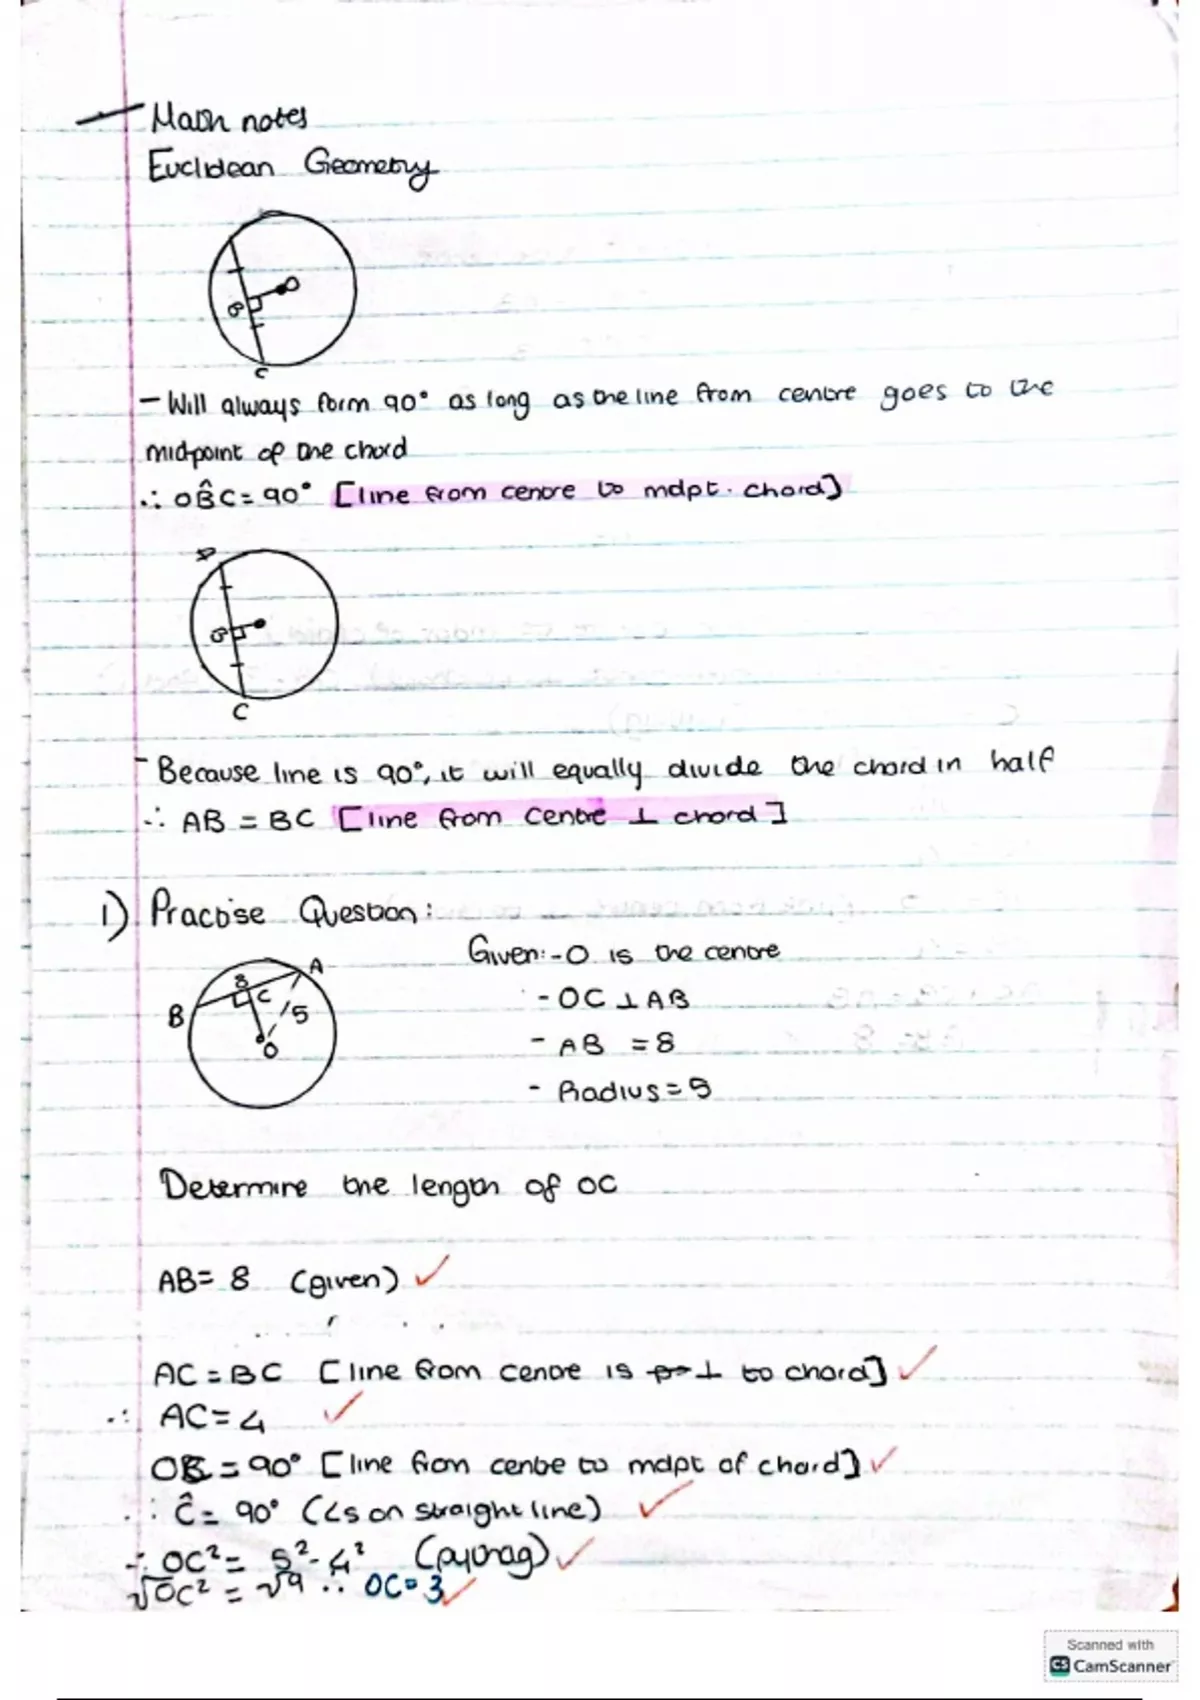 Math notes
Euclidean Geometry
O
B
C
- Will always form 90° as long as the line from centre goes to the
midpoint of the chord
∴ OB̂C = 90° [line from centre to mdpt. chord]
B
C
- Because line is 90°, it will equally divide the chord in half
∴ AB = BC [line from centre ⊥ chord]
1) Practise Question:
Given: - O is the centre
A
8
C
B
5
O
- OC ⊥ AB
- AB = 8
- Radius = 5
Determine the length of OC
AB = 8 (given) ✓
AC = BC [line from centre is ⊥ to chord] ✓
∴ AC = 4 ✓
= 90° [line from centre to mdpt of chord] ✓
∴ Ĉ = 90° (∠s on straight line) ✓
∴ OC² = 5² - 4² (pythag) ✓
√OC² = √9 ∴ OC = 3 ✓
Scanned with
CS CamScanner